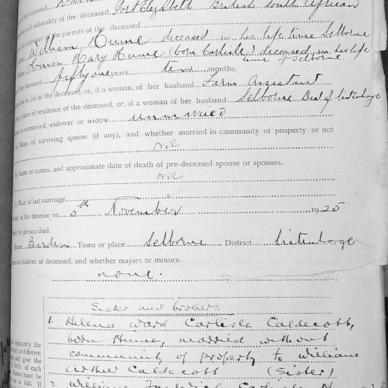 nationality of the deceased Port Elizabeth British South African
of the parents of the deceased
William Hume, deceased in his life time Selborne
Louisa Mary Hume (born Carlisle) deceased in his life
time of Selborne
fifty one years ten months.
in life of the deceased, or, if a woman, of her husband Farm Assistant
place of residence of the deceased, or, if a woman of her husband Selborne Dist of Uitenhage
married, widower or widow unmarried
Name of surviving spouse (if any), and whether married in community of property or not
Nil
Name or names, and approximate date of death of pre-deceased spouse or spouses.
Nil
Place of last marriage
of the decease on 5th November 1925
the person died.
Town or place Selborne District Uitenhage
children, if deceased, and whether majors or minors.
none.
Sister and brothers
1. Helena Ward Carlisle Caldecott,
born Hume, married without
community of property to William
Arthur Caldecott (Sister)
2. William Frederick Carlisle H